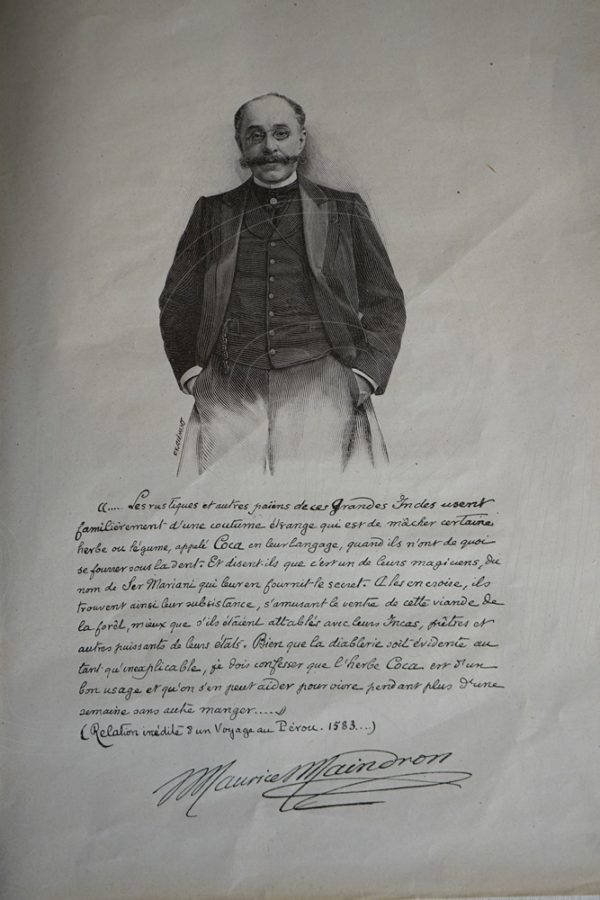 «.... Les rustiques et autres païens de ces Grandes Indes usent
familièrement d'une coutume étrange qui est de mâcher certaine
herbe ou légume, appelé Coca en leur langage, quand ils n'ont de quoi
se fourrer sous la dent. Et disent-ils que c'est un de leurs magiciens, du
nom de Ser Mariani qui leur en fournit le secret. A les en croire, ils
trouvent ainsi leur subsistance, s'amusant le ventre de cette viande de
la forêt, mieux que s'ils étaient attablés avec leurs Incas, prêtres et
autres puissants de leurs états. Bien que la diablerie soit évidente au
tant qu'inexplicable, je dois confesser que l'herbe Coca est d'un
bon usage et qu'on s'en peut aider pour vivre pendant plus d'une
semaine sans autre manger.....»
(Relation inédite d'un Voyage au Pérou. 1583....)
Maurice Maindron